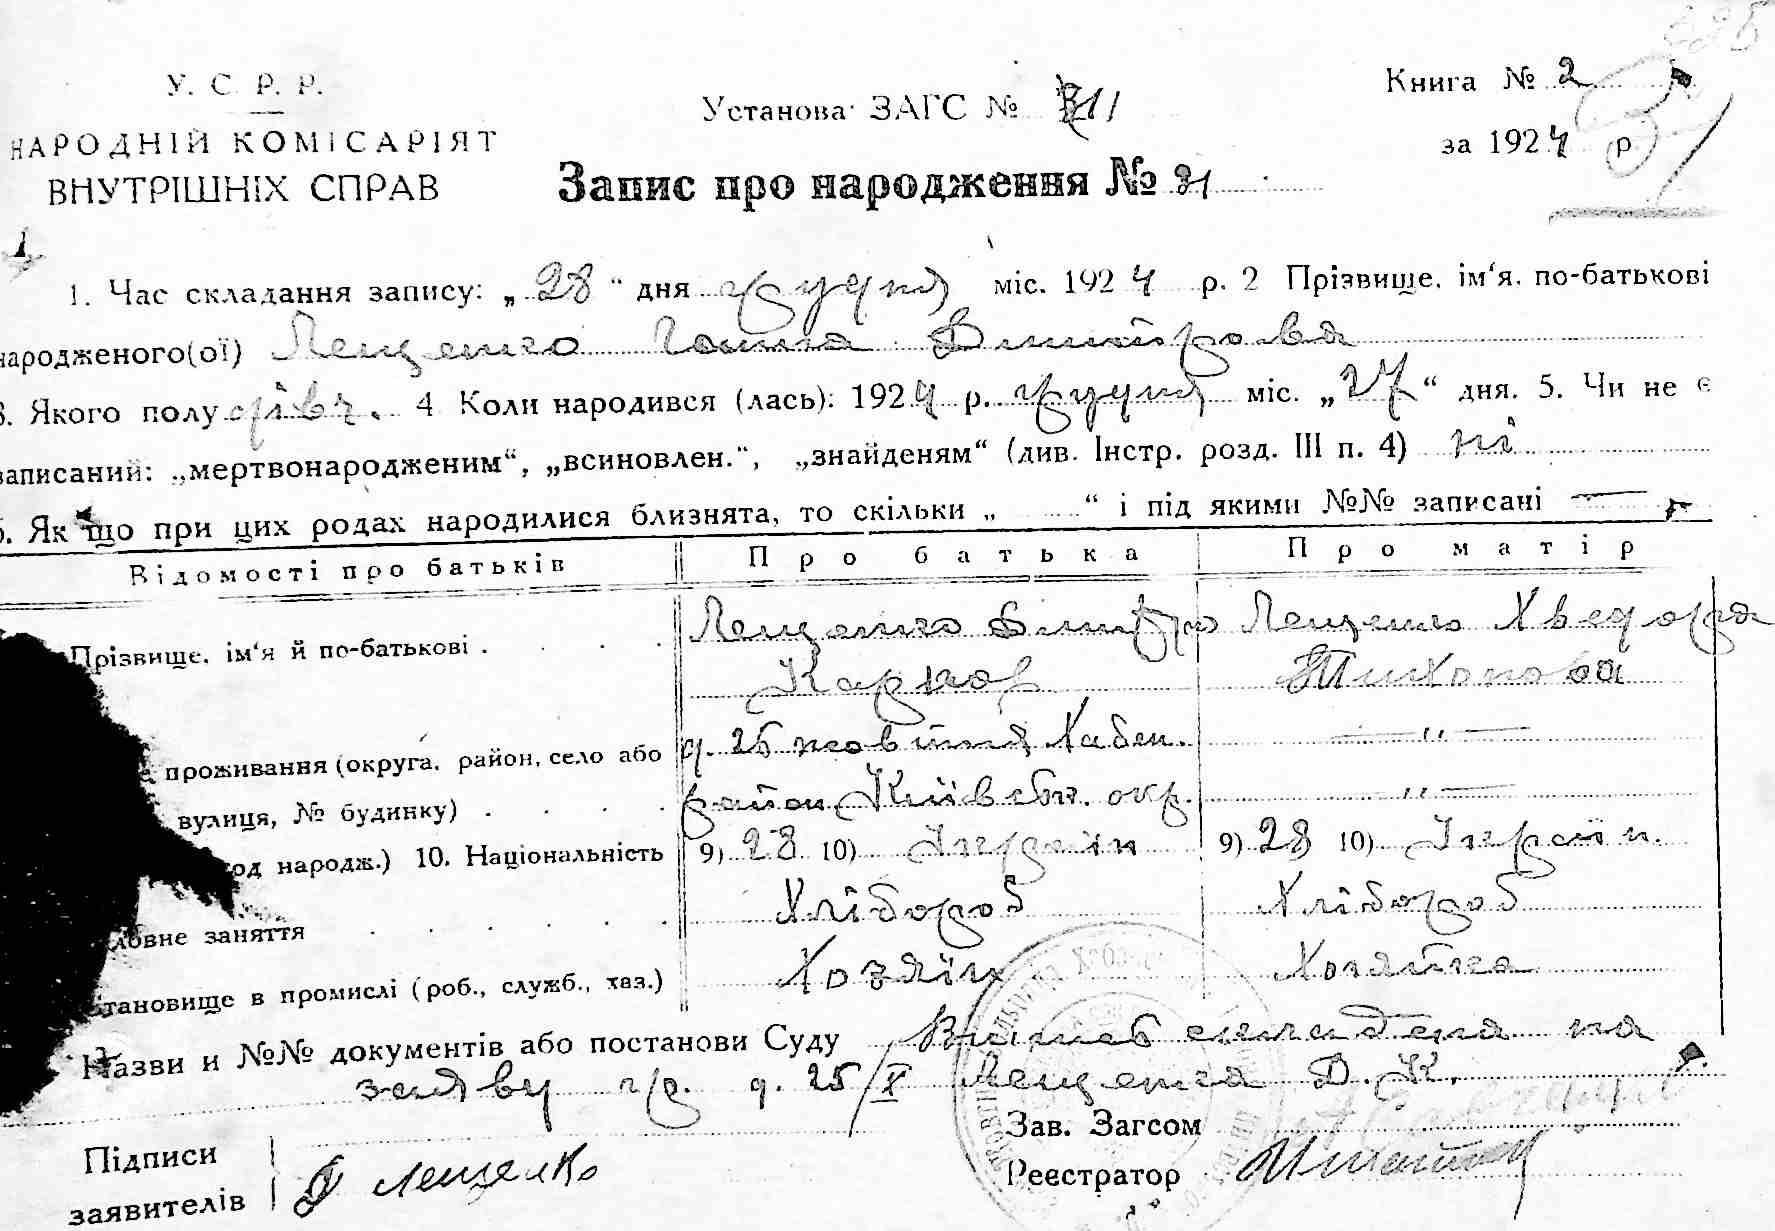 У. С. Р. Р.
НАРОДНІЙ КОМІСАРІЯТ
ВНУТРІШНІХ СПРАВ
Установа ЗАГС №
Запис про народження № 31
Книга № 2
за 1924 р.
1. Час складання запису: „28“ дня грудня міс. 1924 р. 2 Прізвище, ім‘я, по-батькові
народженого(ої) Лещенко Ганна Дмитрова
3. Якого полу дівч. 4 Коли народився (лась): 1924 р. грудня міс. „27“ дня. 5. Чи не є
записаний: „мертвонародженим“, „всиновлен.“, „знайденям“ (див. Інстр. розд. III п. 4) ні
6. Як що при цих родах народилися близнята, то скільки „ “ і під якими №№ записані —
Відомості про батьків Про батька Про матір
Прізвище, ім‘я й по-батькові . Лещенко Дмитро Лещенко Хведора
Карпов Тихонова
проживання (округа, район, село або д. 25 жовтня Хабен. — „ —
вулиця, № будинку) . район, Київськ. окр. — „ —
од народж.) 10. Національність 9) 28 10) Україн 9) 28 10) Україн.
ловне заняття Хлібороб Хлібороб
становище в промислі (роб., служб., хаз.) Хозяїн Хозяйка
Назви и №№ документів або постанови Суду складена на
заяву гр. д. 25/X Лещенка Д. К.
Підписи
заявителів
Д Лещенко
Зав. Загсом
Реестратор